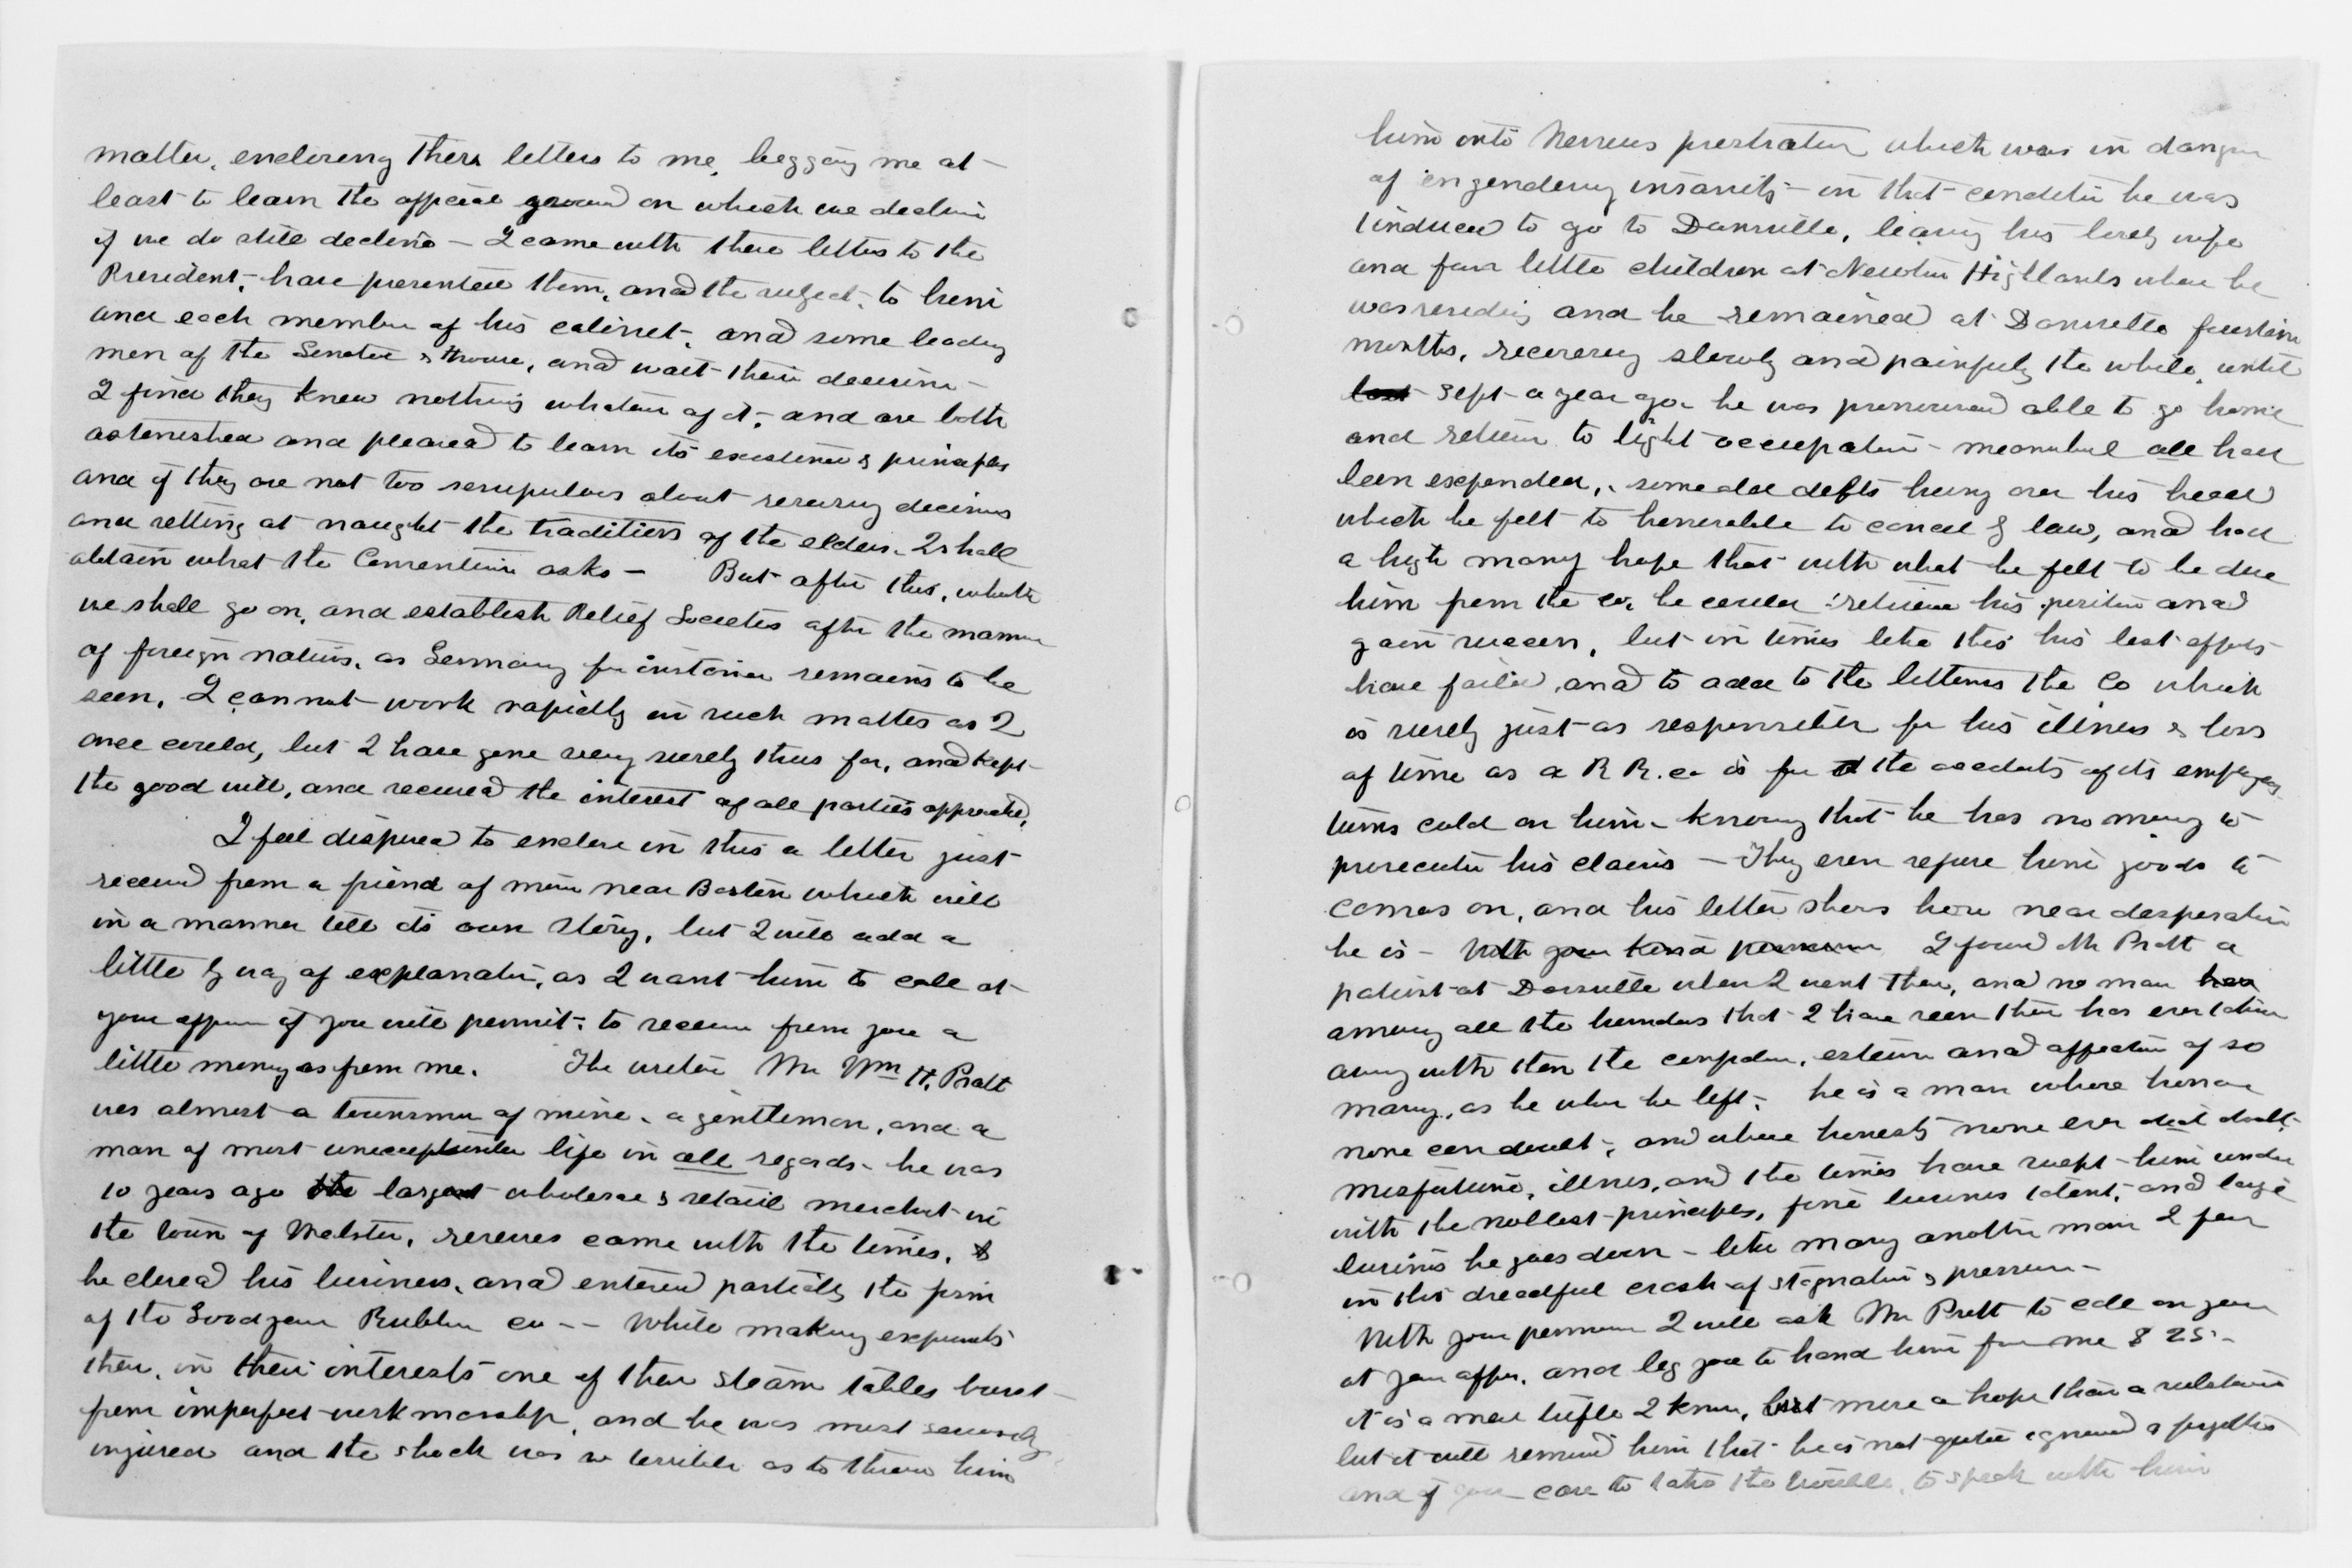 matter, enclosing these letters to me, begging me at
least to learn the official ground on which we decline
if we do still decline – I came with these letters to the
President, have presented them, and the subject, to him
and each member of his cabinet, and some leading
men of the Senate & House, and wait their decision –
I find they knew nothing whatever of it, and are both
astonished and pleased to learn its existence & principles
and if they are not too scrupulous about reversing decisions
and setting at naught the traditions of the elders – I shall
obtain what the Convention asks – But after this, whether
we shall go on, and establish Relief Societies after the manner
of foreign nations, as Germany for instance remains to be
seen. I cannot work rapidly in such matters as I
once could, but I have gone very surely thus far, and kept
the good will, and secured the interest of all parties approached.
I feel disposed to enclose in this a letter just
received from a friend of mine near Boston which will
in a manner tell its own story, but I will add a
little by way of explanation, as I want him to call at
your office if you will permit, to receive from you a
little money as from me. The writer Mr Wm H. Pratt
was almost a townsman of mine – a gentleman, and a
man of most unexceptionable life in all regards – he was
10 years ago the largest wholesale & retail merchant in
the town of Webster, reverses came with the times, &
he closed his business, and entered partially the firm
of the Goodyear Rubber co – – While making experiments
there, in their interests one of their steam tables burst
from imperfect workmanship, and he was most severely
injured and the shock was so terrible as to throw him
him into Nervous prostration which was in danger
of engendering insanity – in that condition he was
induced to go to Dansville, leaving his lovely wife
and four little children at Newton Highlands where he
was residing and he remained at Dansville fourteen
months, recovering slowly and painfully the while, until
last Sept a year ago he was pronounced able to go home
and return to light occupation – meanwhile all had
been expended, some old debts hung over his head
which he felt to honorable to cancel by law, and had
a high manly hope that with what he felt to be due
him from the co, he could retrieve his position and
gain success, but in times like this his best efforts
have failed, and to add to the bitterness the Co which
is surely just as responsible for his illness & loss
of time as a R R. co is for the accidents of its employees
turns cold on him – knowing that he has no money to
prosecute his claims – They even refuse him goods to
comes on, and his letter shows how near desperation
he is – With your kind permission I found Mr Pratt a
patient at Dansville when I went there, and no man has
among all the hundreds that I have seen there has ever taken
away with him the confidence, esteem and affection of so
many, as he when he left, he is a man whose honor
none can doubt, and whose honesty none ever did doubt.
misfortune, illness, and the times have swept him under
with the noblest principles, fine business talent, and large
business he goes down – like many another man I fear
in this dreadful crash of stagnation & pressure –
With your permission I will ask Mr Pratt to call on you
at your office, and beg you to hand him for me $ 25. –
it is a mere trifle I know, but more a hope than a substance
but it will remind him that he is not quite ignored & forgotten
and if you care to take the trouble, to speak with him